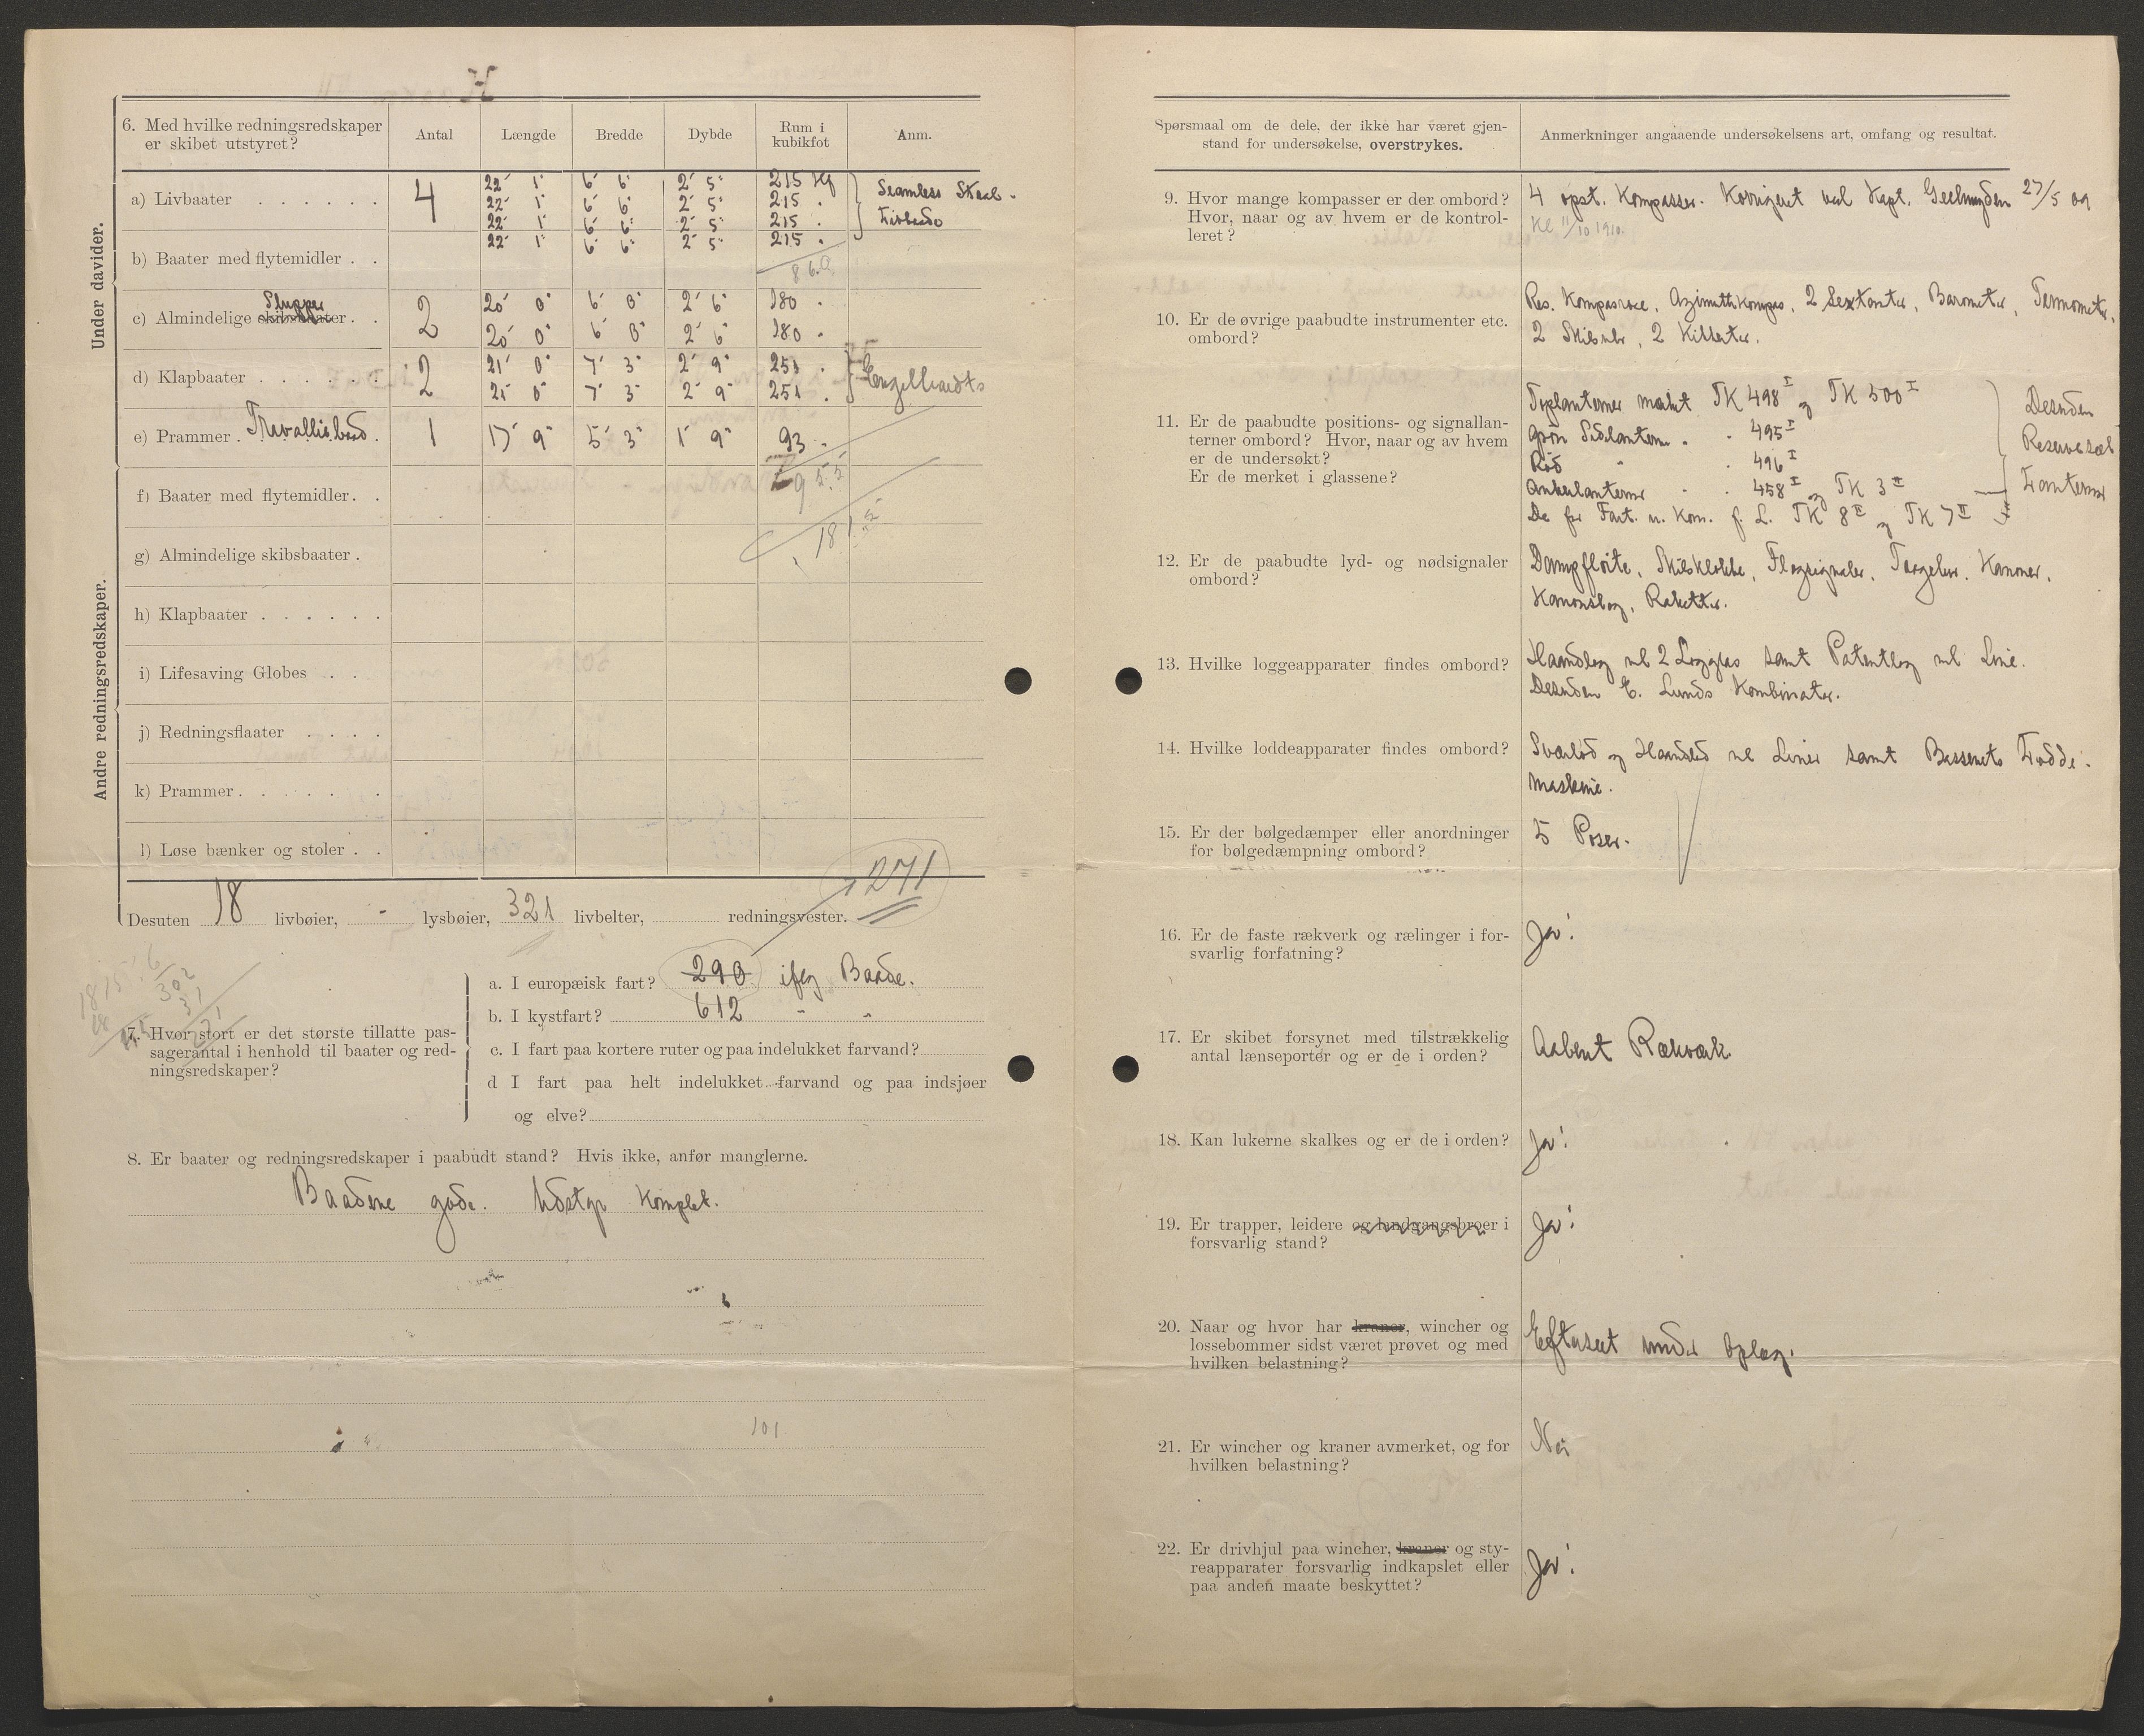 6. Med hvilke redningsredskaper er skibet utstyret?
Antal
Længde
Bredde
Dybde
Rum i kubikfot
Anm.
Under davider.
a) Livbaater . . . . . .
4
22' 1" 6' 6" 2' 5" 215 Kf
22' 1" 6' 6" 2' 5" 215 "
22' 1" 6' 6" 2' 5" 215 "
22' 1" 6' 6" 2' 5" 215 "
Seamless Staal-
b) Baater med flytemidler . .
860
Slupper
c) Almindelige skibsbaater . .
2
20' 0" 6' 0" 2' 6" 180 "
20' 0" 6' 0" 2' 6" 180 "
d) Klapbaater . . . . . .
2
21' 0" 7' 3" 2' 9" 251 "
21' 0" 7' 3" 2' 9" 251 "
Engelhardts
e) Prammer . Travalliebaad .
1
17' 9" 5' 3" 1' 9" 93 "
955
Andre redningsredskaper.
f) Baater med flytemidler . .
1815
g) Almindelige skibsbaater .
h) Klapbaater . . . . . .
i) Lifesaving Globes . .
j) Redningsflaater . . . .
k) Prammer . . . . . .
l) Løse bænker og stoler . .
271
Desuten 18 livbøier, - lysbøier, 321 livbelter, redningsvester.
1815 : 6
302
31
271
7. Hvor stort er det største tillatte pas-
sagerantal i henhold til baater og red-
ningsredskaper?
a. I europæisk fart? 290 iflg Baade.
b. I kystfart? 612 " "
c. I fart paa kortere ruter og paa indelukket farvand?
d I fart paa helt indelukket farvand og paa indsjøer
og elve?
8. Er baater og redningsredskaper i paabudt stand? Hvis ikke, anfør manglerne.
Baadene gode. Udstyr komplet.
101
Spørsmaal om de dele, der ikke har været gjen-
stand for undersøkelse, overstrykes.
Anmerkninger angaaende undersøkelsens art, omfang og resultat.
9. Hvor mange kompasser er der ombord?
Hvor, naar og av hvem er de kontrol-
leret?
4 opst. Kompasser. Korrigeret ved Kapt. Geelmuyden 27/5 09
Kl 11/10 1910.
10. Er de øvrige paabudte instrumenter etc.
ombord?
Res. Kompasrose, Azimuthkompas, 2 Sextanter, Barometer, Termometer,
2 Skibsuhr, 2 Kikkerter.
11. Er de paabudte positions- og signallan-
terner ombord? Hvor, naar og av hvem
er de undersøkt?
Er de merket i glassene?
Toplanterner mærket TK 498 I og TK 500 I
Grøn Sidelanterne " " 495 I
Rød " " 496 I
Ankerlanterner " " 458 I og TK 3 II
De for Fart. u. Kom. f. L. TK 8 II og TK 7 II
Desuden
Reservesæt
Lanterner
12. Er de paabudte lyd- og nødsignaler
ombord?
Dampfløite, Skibsklokke, Flagsignaler, Taagelur, Kanoner,
Kanonslag, Raketter.
13. Hvilke loggeapparater findes ombord?
Haandlog med 2 Logglas samt Patentlog med Line.
Desuden E. Lunds Kombinator.
14. Hvilke loddeapparater findes ombord?
Sværlod og Haandlod med Liner samt Bassenets Lodde-
maskine.
15. Er der bølgedæmper eller anordninger
for bølgedæmpning ombord?
5 Poser.
16. Er de faste rækverk og rælinger i for-
svarlig forfatning?
Ja!
17. Er skibet forsynet med tilstrækkelig
antal lænseporter og er de i orden?
Aabent Rækværk
18. Kan lukerne skalkes og er de i orden?
Ja!
19. Er trapper, leidere og landgangsbroer i
forsvarlig stand?
Ja!
20. Naar og hvor har kraner, wincher og
lossebommer sidst været prøvet og med
hvilken belastning?
Efterseet under Oplag.
21. Er wincher og kraner avmerket, og for
hvilken belastning?
Nei
22. Er drivhjul paa wincher, kraner og sty-
reapparater forsvarlig indkapslet eller
paa anden maate beskyttet?
Ja!